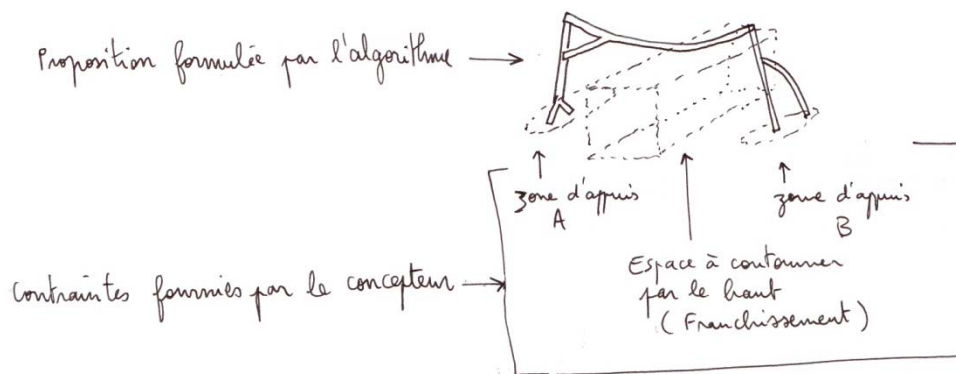 Proposition formulée par l'algorithme
zone d'appuis
A
zone d'appuis
B
Espace à contourner
par le haut
(Franchissement)
Contraintes fournies par le concepteur